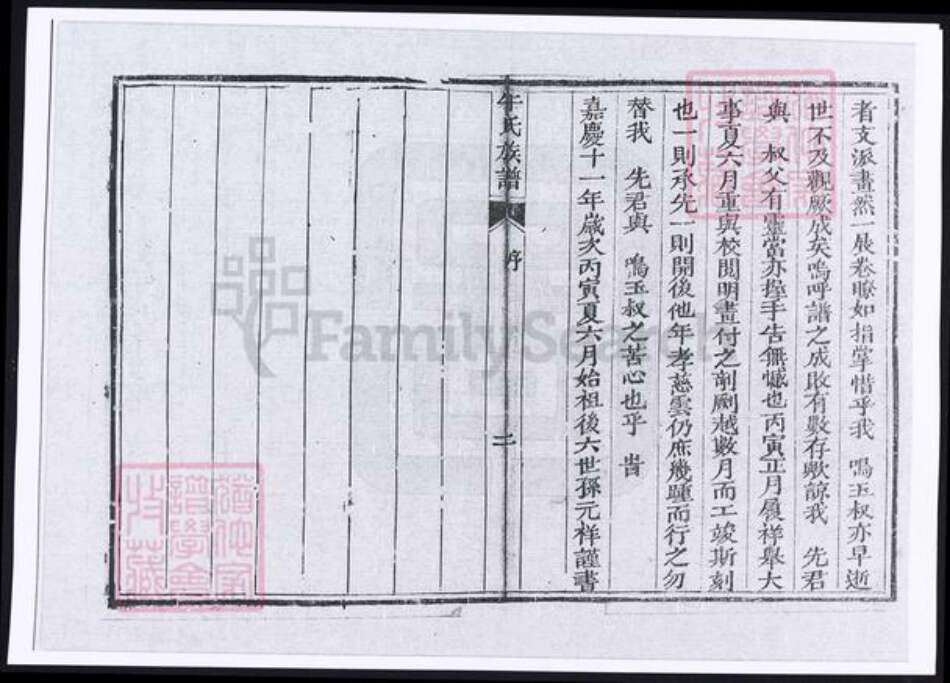 者支派畫然一展卷瞭如指掌惜乎我 鳴玉叔亦早逝
世不及觀厥成矣嗚呼譜之成敗有數存歟諒我 先君
與 叔父有靈當亦握手告無憾也丙寅正月展祥舉大
事夏六月重與校閱明晝付之剞劂越數月而工竣斯刻
也一則承先一則開後他年孝慈雲仍庶幾踵而行之勿
替我 先君與 鳴玉叔之苦心也乎 旹
嘉慶十一年歲次丙寅夏六月始祖後六世孫元祥謹書
牛氏族譜 序 二
FamilySearch